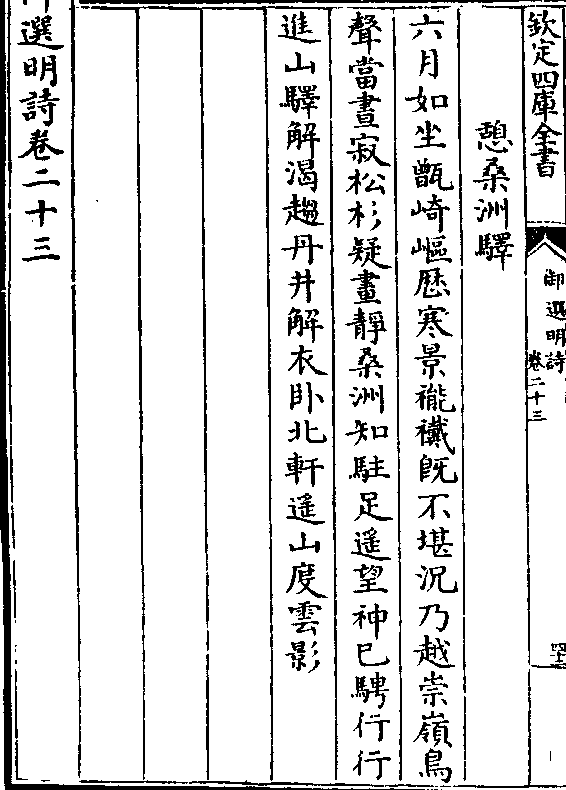 欽定四庫全書
御選明詩
卷二十三
憩桑洲驛
六月如坐甑崎嶇厯寒景褦襶旣不堪況乃越崇嶺鳥
聲當晝寂松杉疑畫靜桑洲知駐足遥望神已騁行行
進山驛解渴趨丹井解衣卧北軒遥山度雲影
選明詩卷二十三